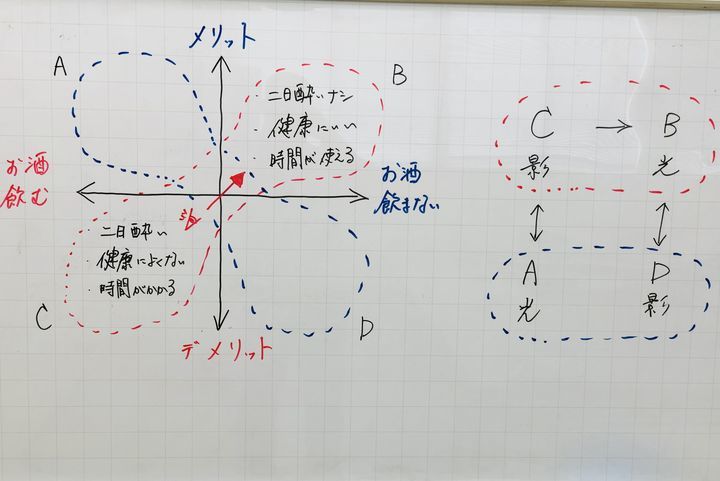 メリット
A
B
・二日酔いナシ
・健康にいい
・時間が使える
お酒
飲む
お酒
飲まない
・二日酔い
・健康によくない
・時間がかかる
C
D
デメリット
C → B
影 光
A D
光 影